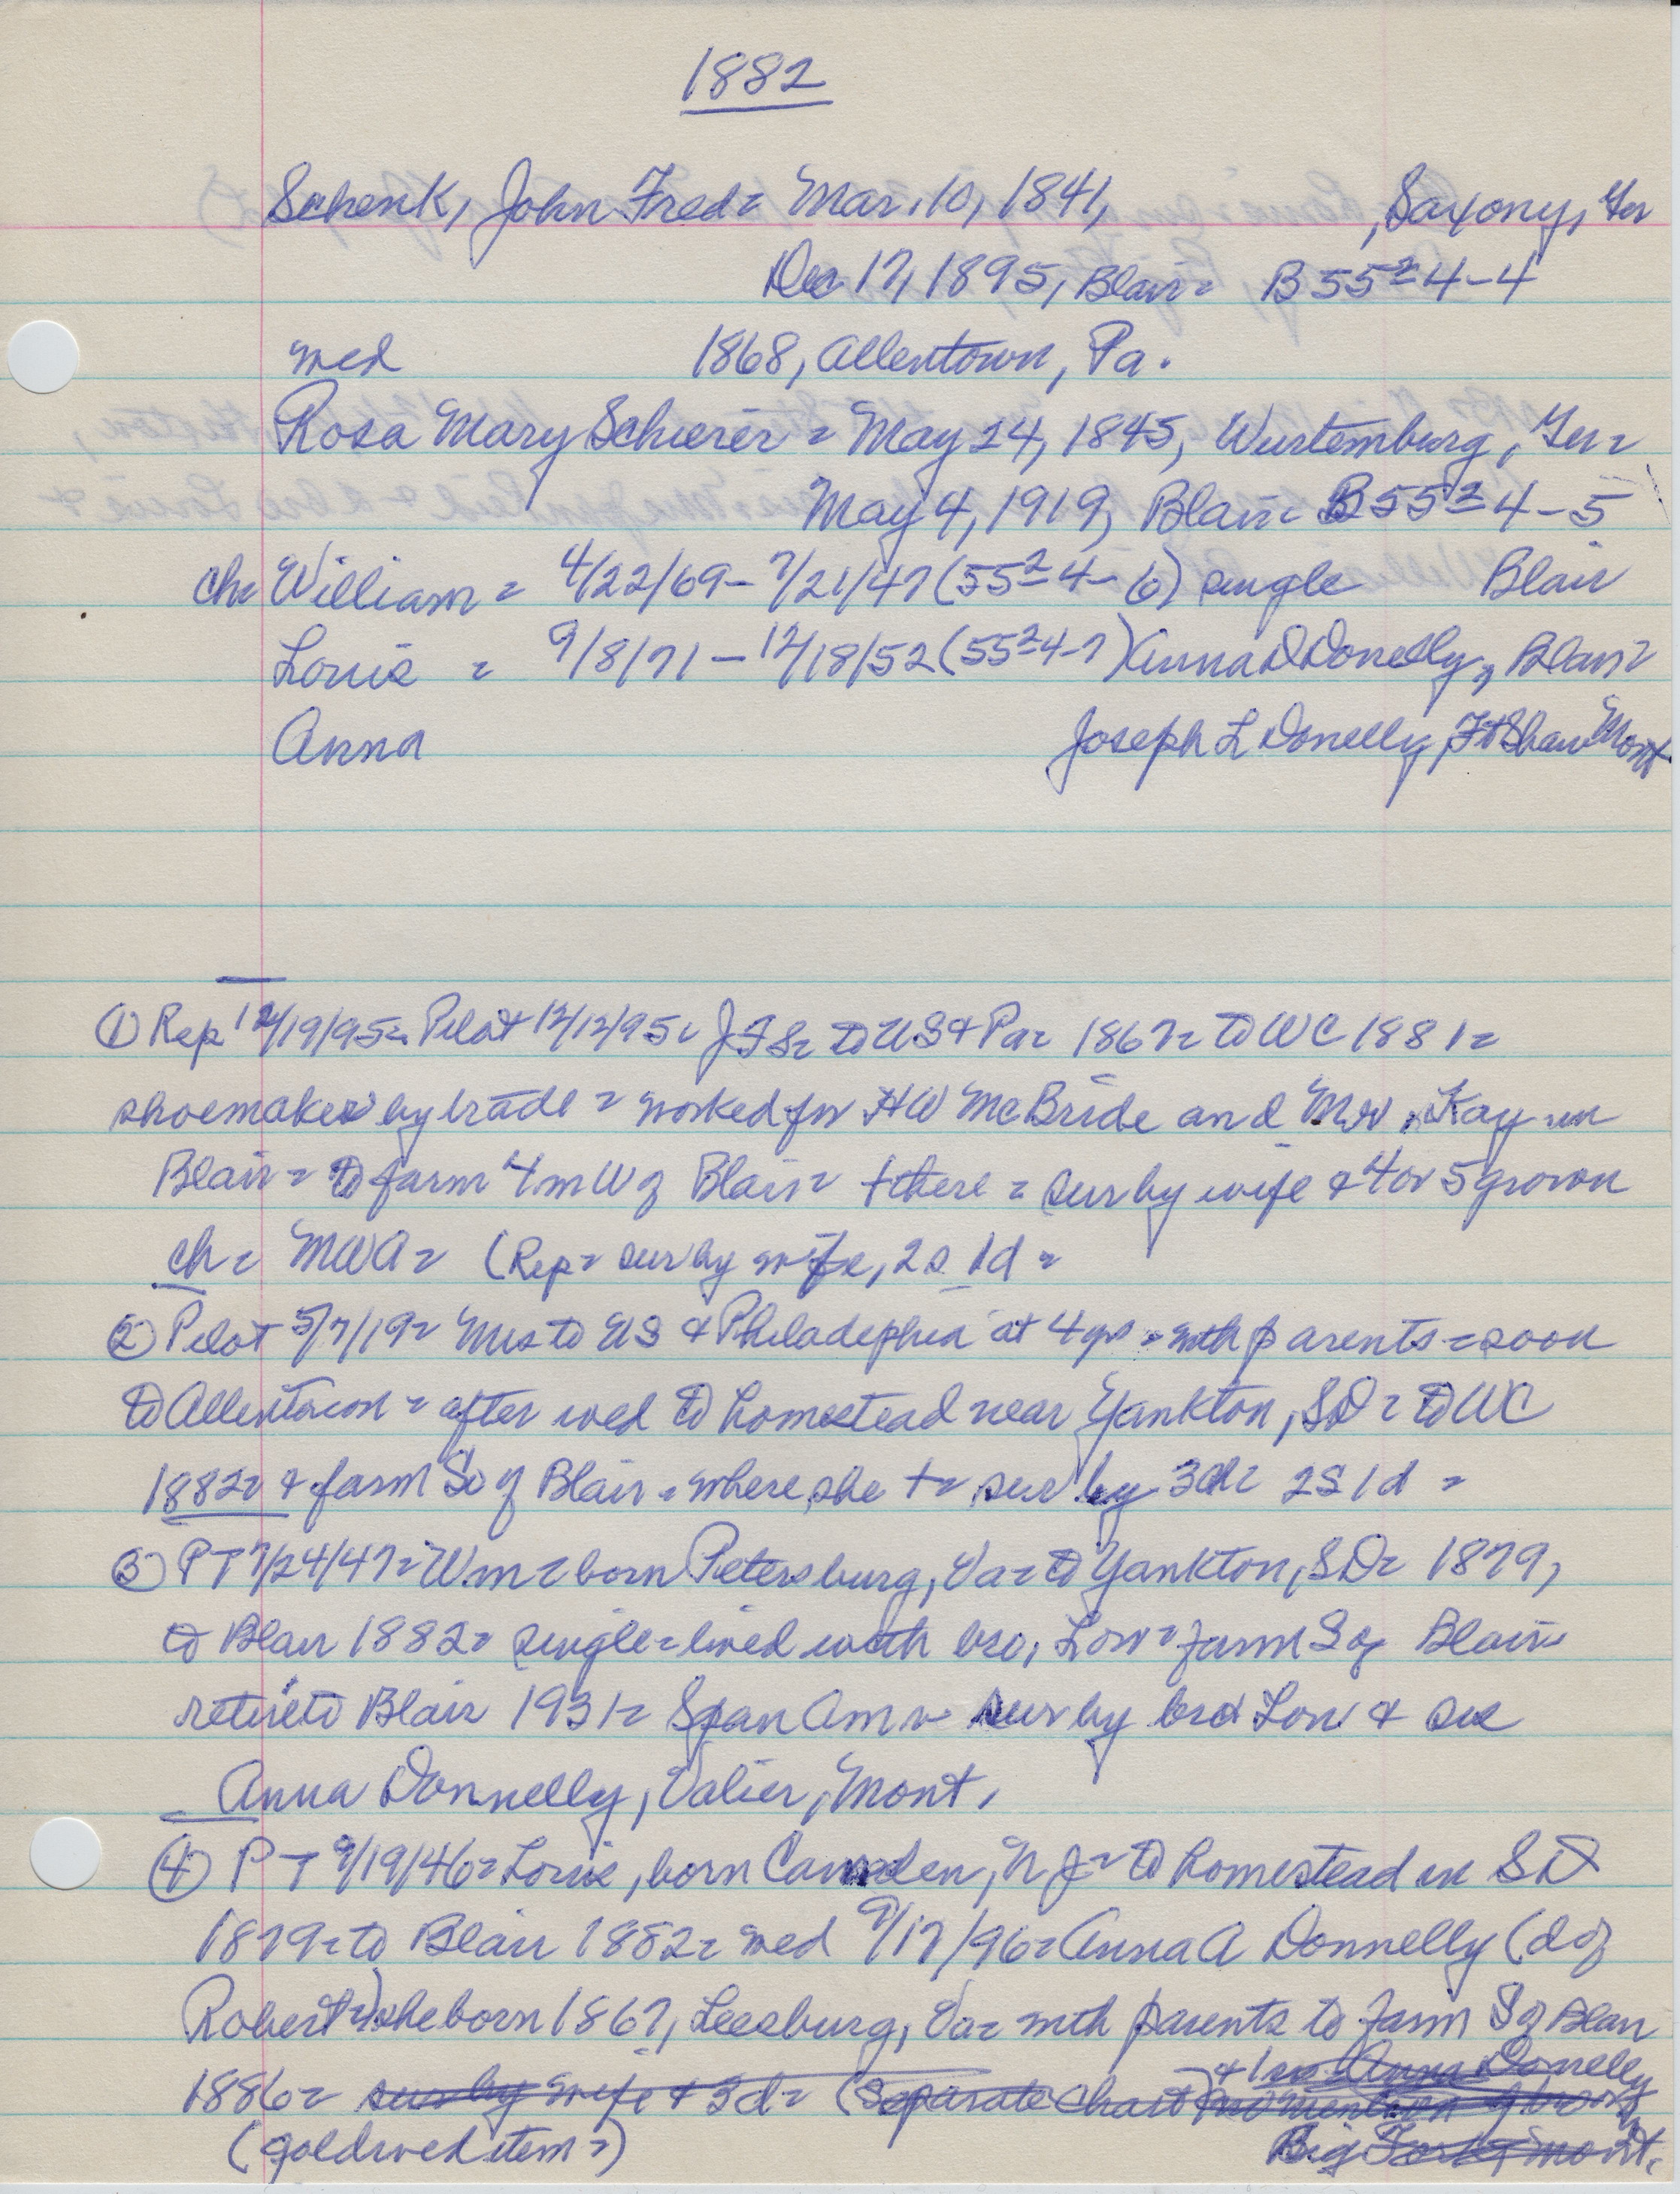 1882
Schenk, John Fred = Mar. 10, 1841, , Saxony, Ger
Dec 17, 1895, Blair = B 55² 4-4
wed 1868, Allentown, Pa.
Rosa Mary Schierer = May 24, 1845, Wurtemburg, Ger =
May 4, 1919, Blair = B 55² 4-5
ch = William = 4/22/69 - 7/21/47 (55² 4-6) single Blair
Louis = 9/8/71 - 12/18/52 (55² 4-7) Anna D Donelly, Blair =
Anna Joseph L Donelly, Ft Shaw Mont
① Rep 12/19/95 = Pilot 12/12/95 = JFS = to US & Pa = 1867 = to WC 1881 =
shoemaker by trade = worked for HW McBride and Mr. Kay in
Blair = to farm 4 m W of Blair = + there = sur by wife & 4 or 5 grown
ch = MWA = (Rep = sur by wife, 2s 1d =
② Pilot 5/7/19 = Mrs to US & Philadephia at 4 yrs = with parents = soon
to Allentown = after wed to homestead near Yankton, SD = to WC
1882 = & farm So of Blair = where she + = sur by 3 ch = 2S 1d =
③ PT 7/24/47 = Wm = born Petersburg, Va = to Yankton, SD = 1879,
to Blair 1882 = single = lived with bro, Lou = farm S of Blair =
retire to Blair 1931 = Span Am = sur by bro Lou & sis
Anna Donnelly, Valier, Mont.
④ PT 9/19/46 = Louis, born Camden, NJ = to homestead in SD
1879 = to Blair 1882 = wed 9/17/96 = Anna A Donnelly (d of
Robert =) she born 1867, Leesburg, Va = with parents to farm S of Blair
1886 = sur by wife & 3d = (Separate chart) & 1 sis Anna Donnelly
no mention of
(gold wed item =) Big Fork, Mont.